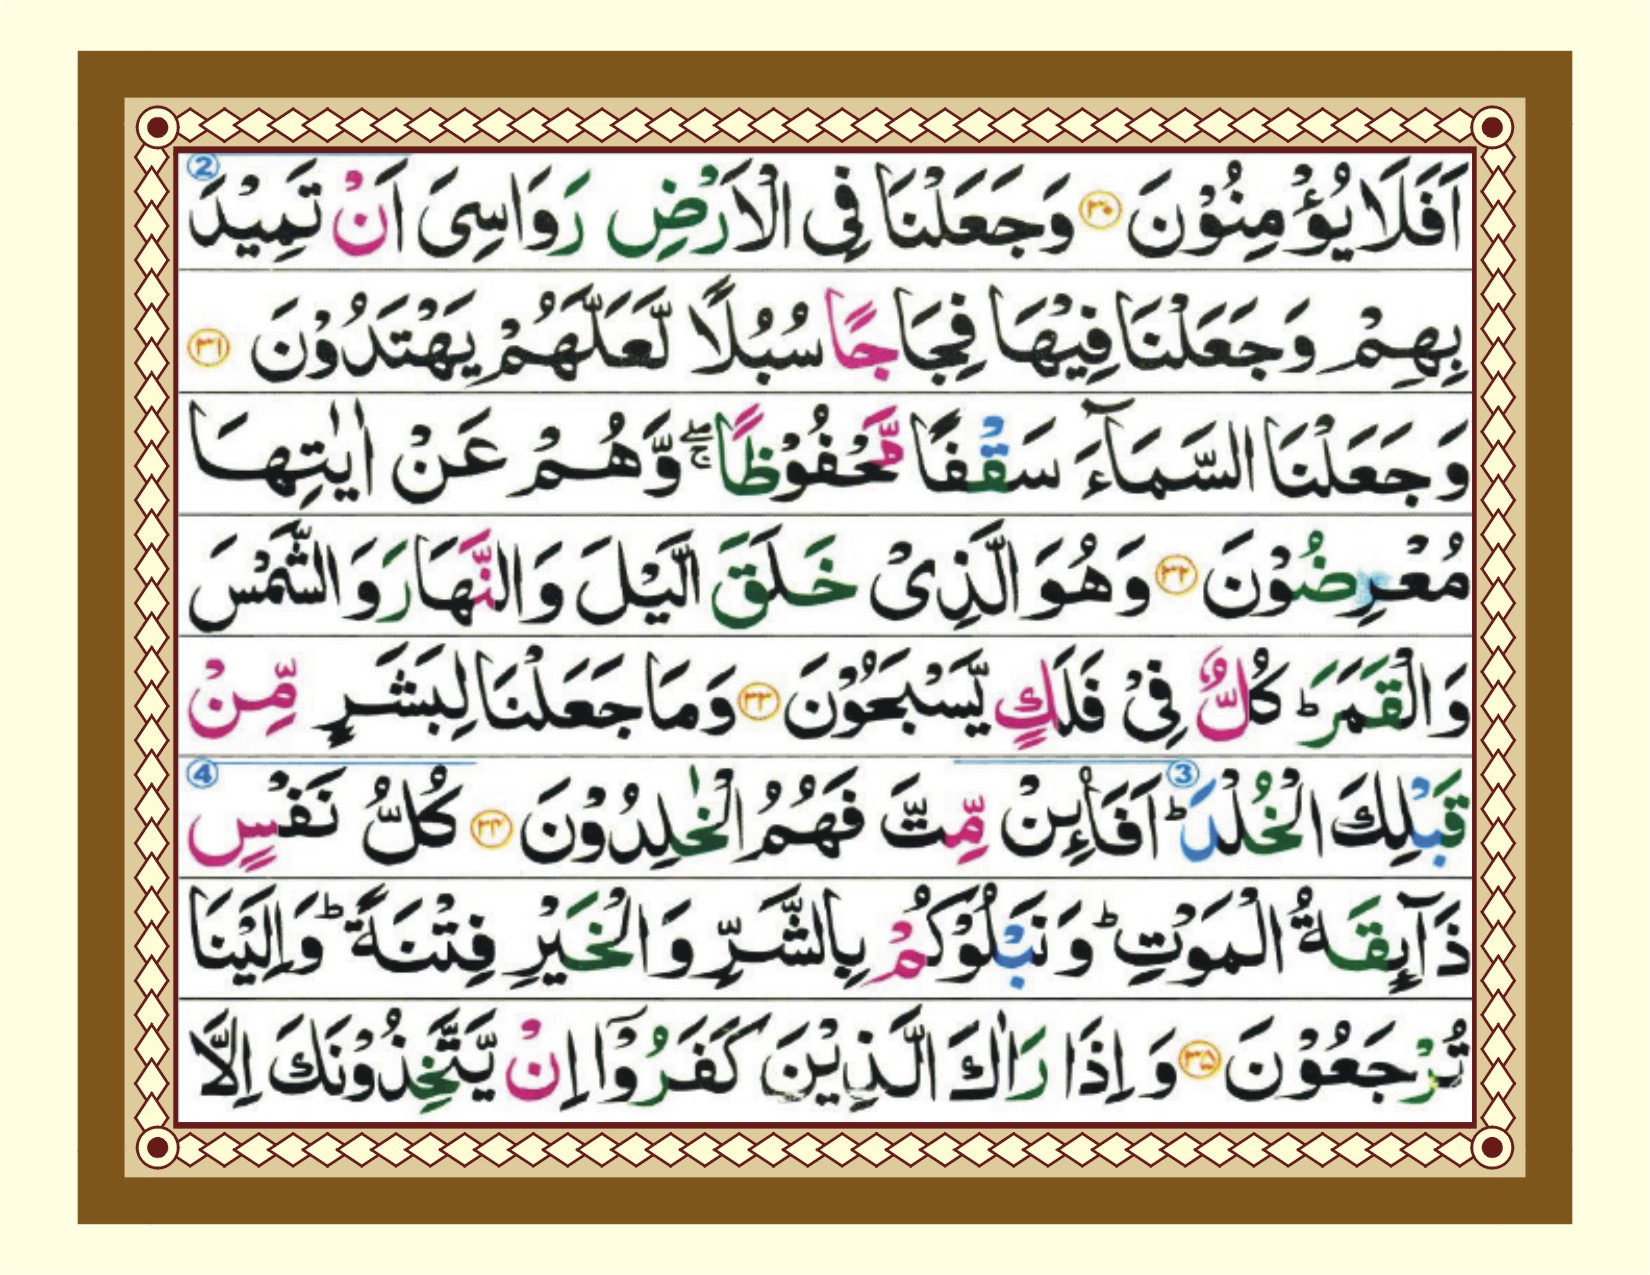 ②
اَفَلَا يُؤْمِنُوْنَ ۝۳۰ وَجَعَلْنَا فِى الْاَرْضِ رَوَاسِىَ اَنْ تَمِيْدَ
بِهِمْ وَجَعَلْنَا فِيْهَا فِجَاجًا سُبُلًا لَّعَلَّهُمْ يَهْتَدُوْنَ ۝۳۱
وَجَعَلْنَا السَّمَآءَ سَقْفًا مَّحْفُوْظًا ۖۚ وَّهُمْ عَنْ اٰيٰتِهَا
مُعْرِضُوْنَ ۝۳۲ وَهُوَ الَّذِىْ خَلَقَ الَّيْلَ وَالنَّهَارَ وَالشَّمْسَ
وَالْقَمَرَ ؕ كُلٌّ فِىْ فَلَكٍ يَّسْبَحُوْنَ ۝۳۳ وَمَا جَعَلْنَا لِبَشَرٍ مِّنْ
④ ③
قَبْلِكَ الْخُلْدَ ؕ اَفَا۟ئِنْ مِّتَّ فَهُمُ الْخٰلِدُوْنَ ۝۳۴ كُلُّ نَفْسٍ
ذَآئِقَةُ الْمَوْتِ ؕ وَنَبْلُوْكُمْ بِالشَّرِّ وَالْخَيْرِ فِتْنَةً ؕ وَاِلَيْنَا
تُرْجَعُوْنَ ۝۳۵ وَاِذَا رَاٰكَ الَّذِيْنَ كَفَرُوْۤا اِنْ يَّتَّخِذُوْنَكَ اِلَّا